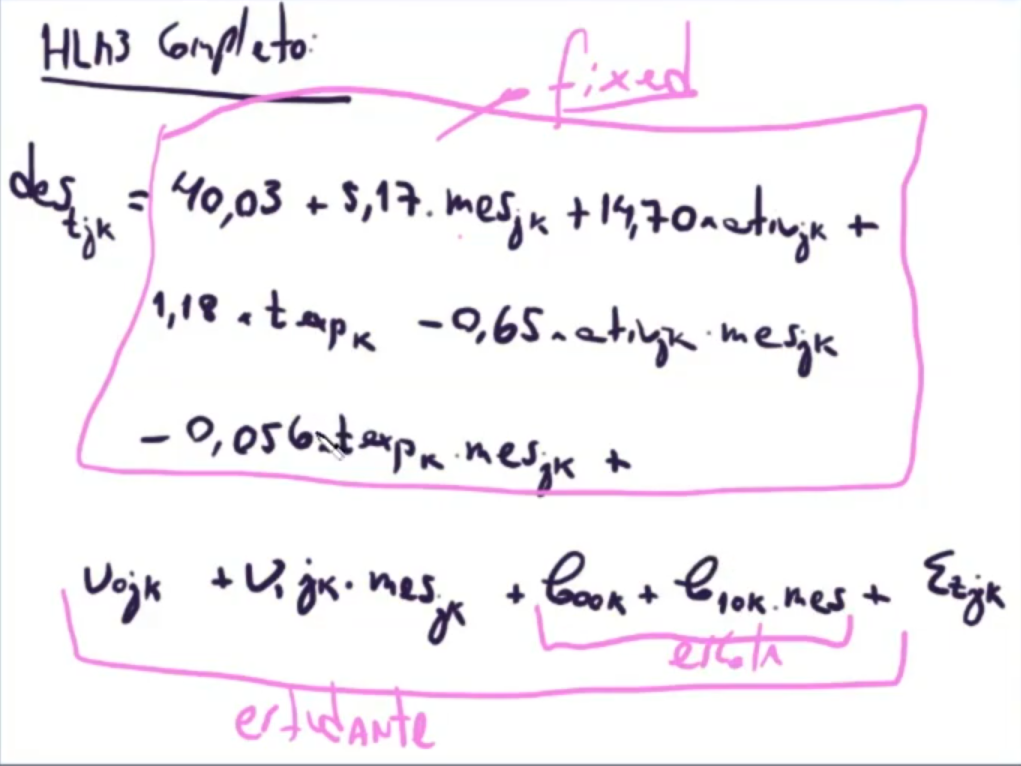 HLM3 Completo:
fixed
des_tjk = 40,03 + 5,17.mes_jk + 14,70.ativ_jk +
1,18.texp_k - 0,65.ativ_jk.mes_jk
- 0,056.texp_k.mes_jk +
υ_0jk + υ_1jk.mes_jk + τ_00k + τ_10k.mes + ε_tjk
escola
estudante